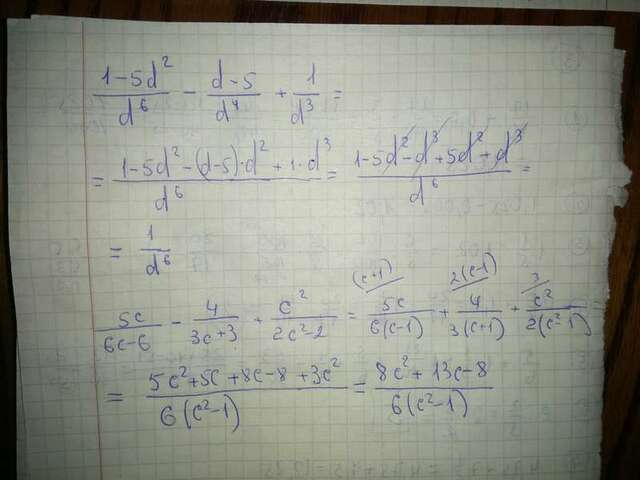 (1-5d²)/d⁶ - (d-5)/d⁴ + 1/d³ =
= (1-5d²-(d-5)·d²+1·d³)/d⁶ = (1-5d²-d³+5d²+d³)/d⁶ =
= 1/d⁶
(c+1) 2(c-1) 3
5c/(6c-6) - 4/(3c+3) + c²/(2c²-2) = 5c/(6(c-1)) + 4/(3(c+1)) + c²/(2(c²-1)) =
= (5c²+5c+8c-8+3c²)/(6(c²-1)) = (8c²+13c-8)/(6(c²-1))